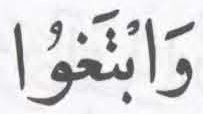 وَابْتَغُوا